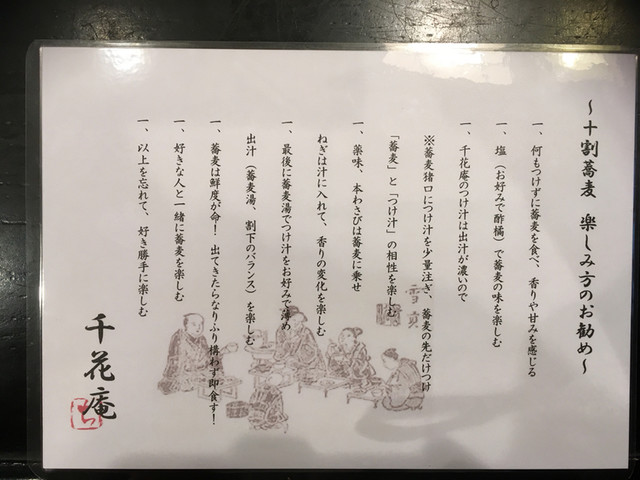 〜十割蕎麦 楽しみ方のお勧め〜
一、何もつけずに蕎麦を食べ、香りや甘みを感じる
一、塩（お好みで酢橘）で蕎麦の味を楽しむ
一、千花庵のつけ汁は出汁が濃いので
※蕎麦猪口につけ汁を少量注ぎ、蕎麦の先だけつけ
「蕎麦」と「つけ汁」の相性を楽しむ
一、薬味、本わさびは蕎麦に乗せ
ねぎは汁に入れて、香りの変化を楽しむ
一、最後に蕎麦湯でつけ汁をお好みで薄め
出汁（蕎麦湯、割下のバランス）を楽しむ
一、蕎麦は鮮度が命！ 出てきたらなりふり構わず即食す！
一、好きな人と一緒に蕎麦を楽しむ
一、以上を忘れて、好き勝手に楽しむ
千花庵